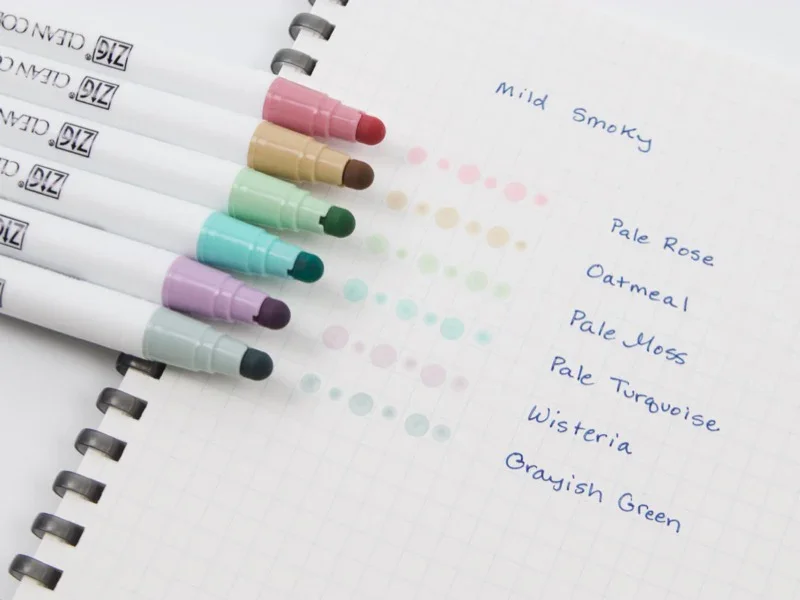 ZIG CLEAN CO
ZIG CLEAN CO
ZIG CLEAN CO
ZIG CLEAN
ZIG
Mild Smoky
Pale Rose
Oatmeal
Pale Moss
Pale Turquoise
Wisteria
Grayish Green